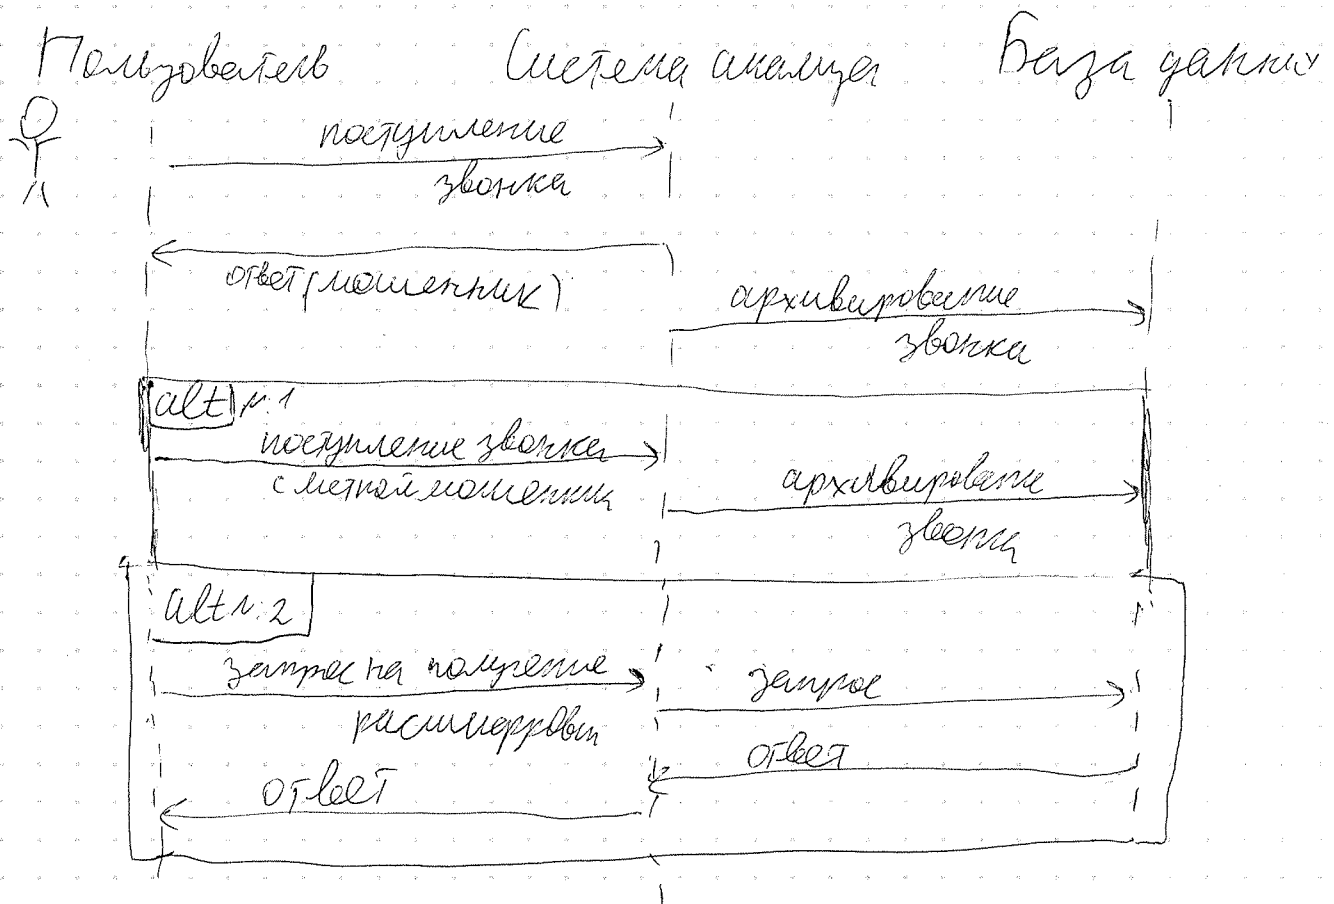 Пользователь
Система анализа
База данных
поступление
звонка
ответ (мошенник)
архивирование
звонка
alt №1
поступление звонка
с меткой мошенник
архивирование
звонка
alt №2
запрос на получение
расшифровки
запрос
ответ
ответ